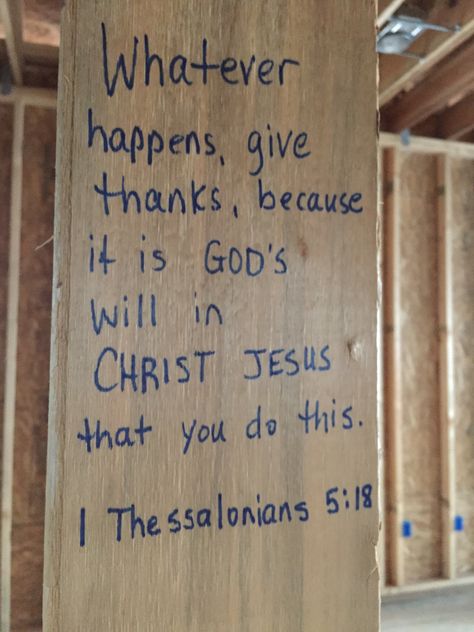 Whatever
happens, give
thanks, because
it is GOD'S
will in
CHRIST JESUS
that you do this.
1 Thessalonians 5:18